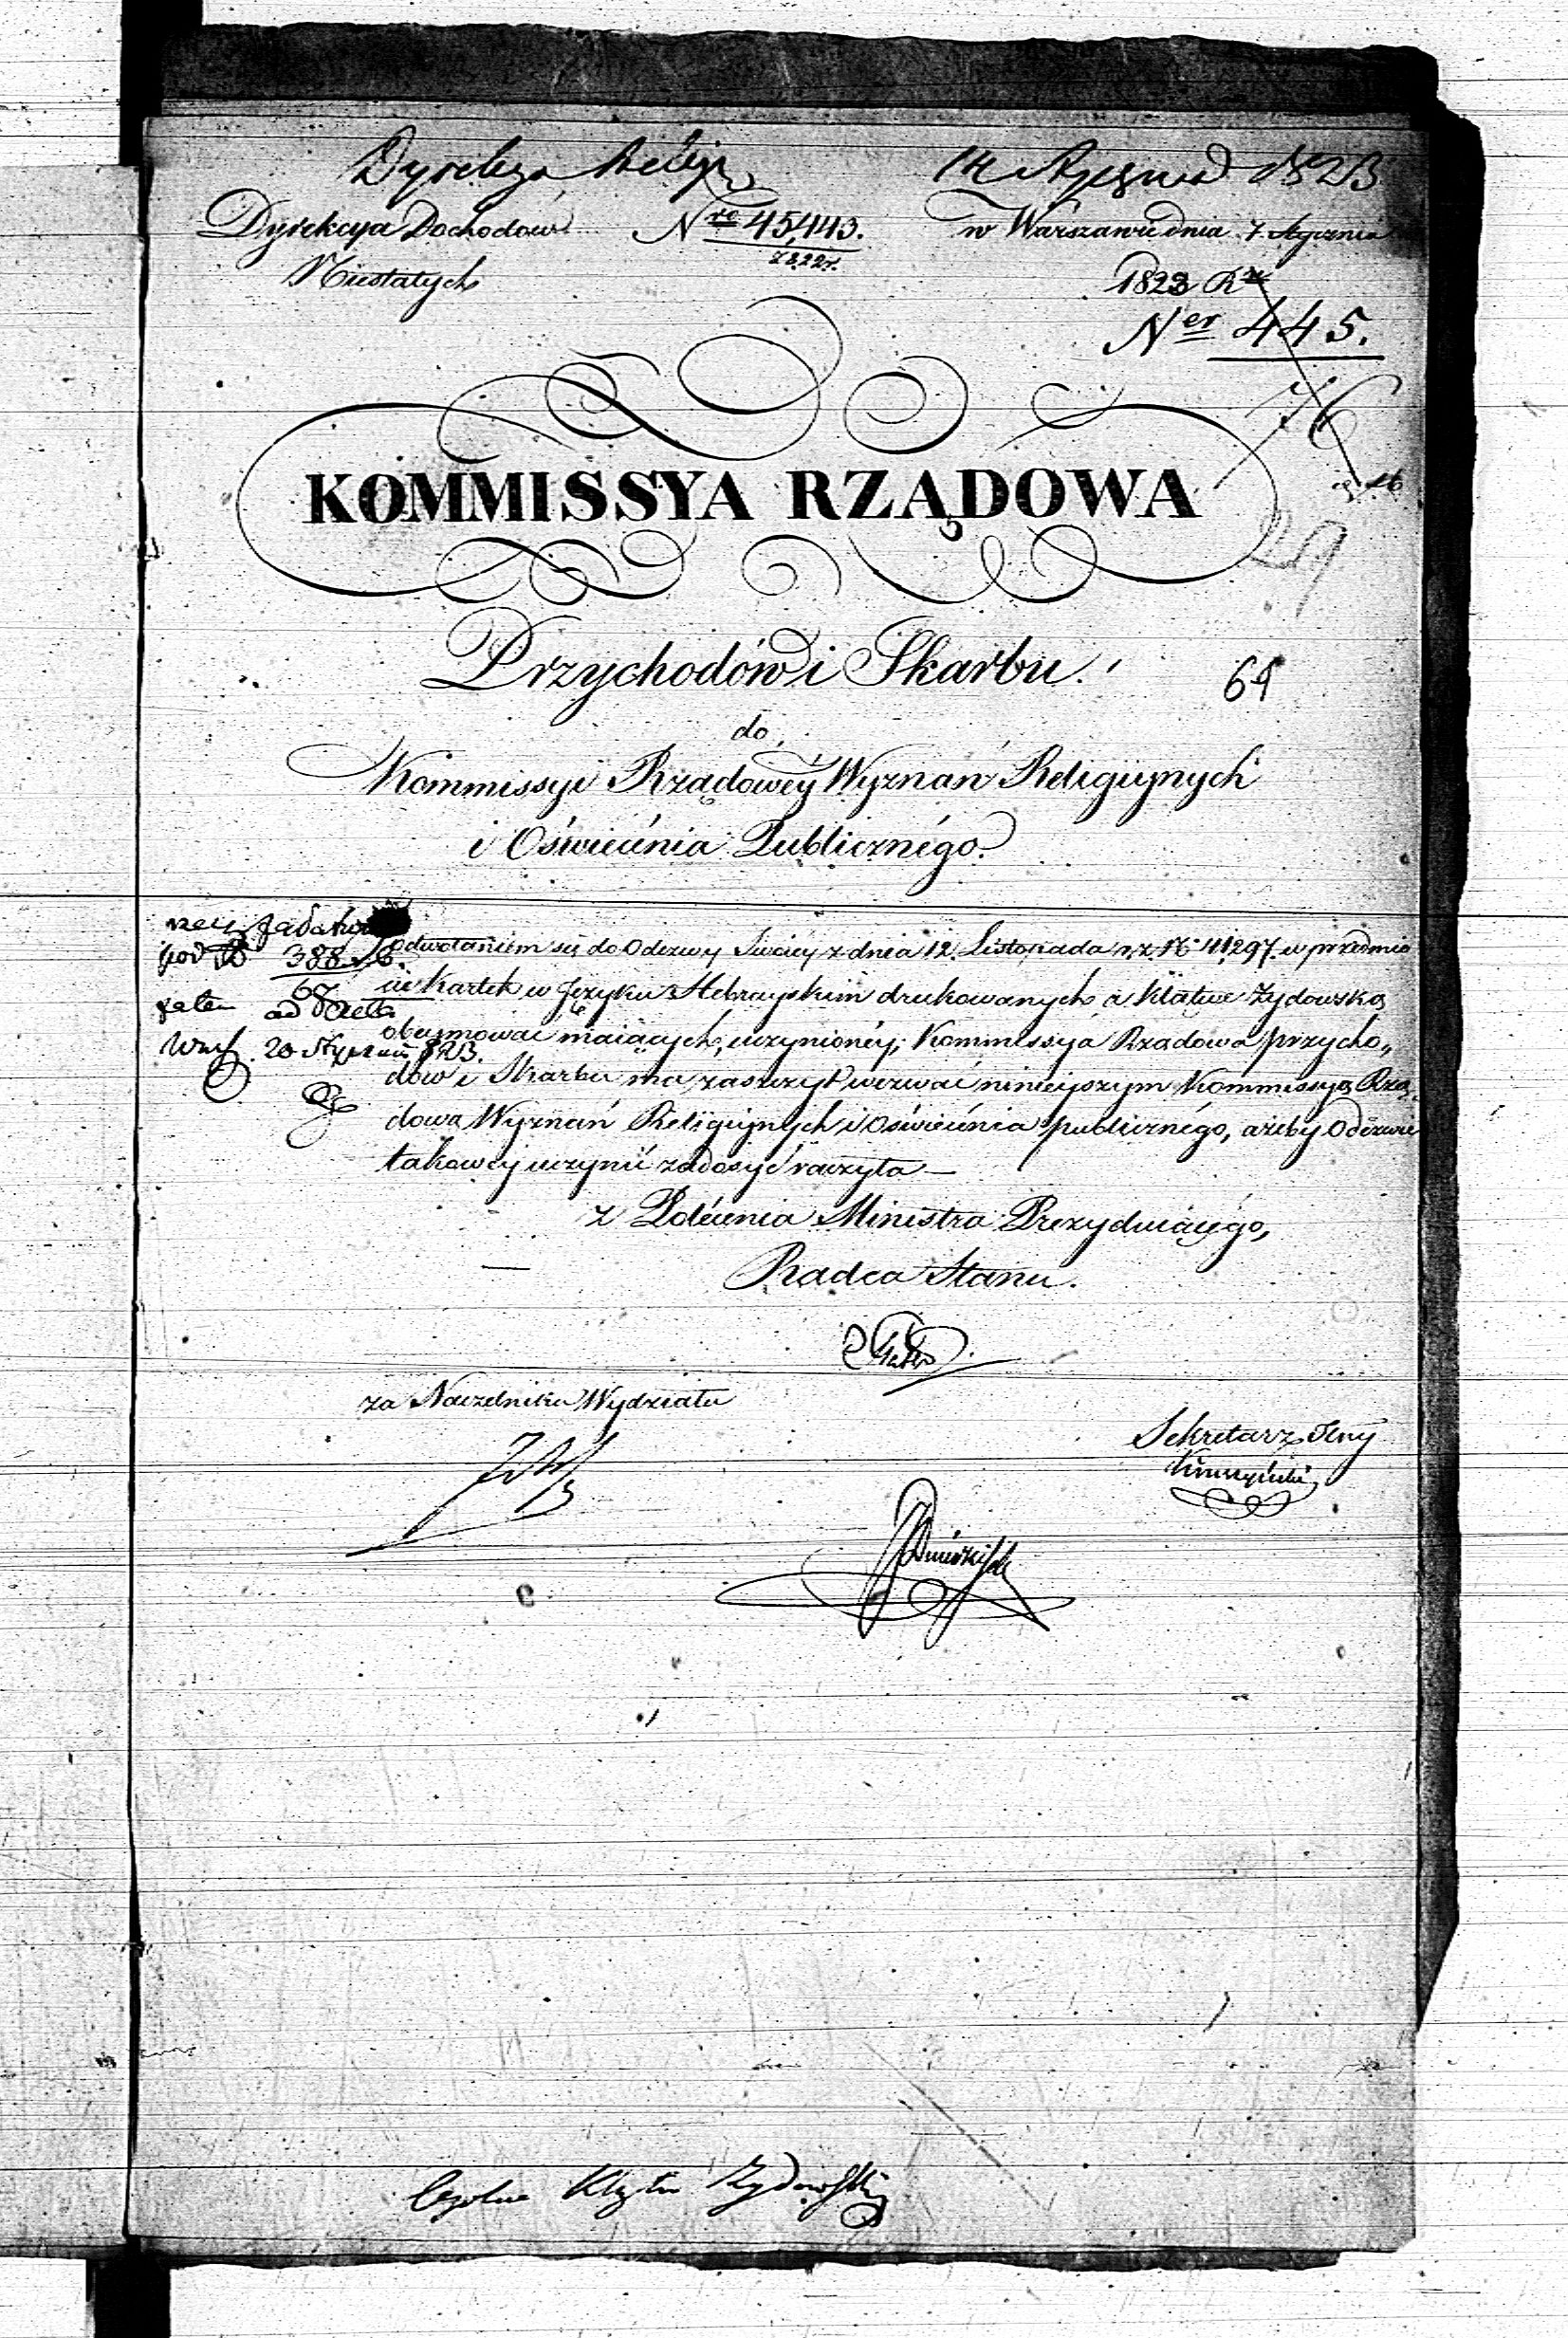 14 Stycznia 1823
Dyrekcya Dochodów Nro 45,443. w Warszawie dnia 7. Stycznia
1822r.
Niestałych
1823 Ru
Ner 445.
76
KOMMISSYA RZĄDOWA
29
Przychodów i Skarbu.
64
do
Kommissyi Rządowéy Wyznań Religiynych
i Oświécénia Publicznégo.
pod No 388
67
zatem ad acta
20 Stycznia 823.
Z odwołaniem się do Odezwy Swoiey z dnia 12. Listopada r. z. No 41,297. w przedmio
cie Kartek w Języku Hebrayskim drukowanych a Klątwę Żydowską
obeymować maiących, uczynionéy, Kommissya Rządowa przycho„
dów i Skarbu ma zaszczyt wezwać ninieyszym Kommissyą Rzą„
dową Wyznań Religiynych i Oświécénia publicznégo, ażeby Odezwie
takowéy uczynić zadosyć raczyła —
z Polécénia Ministra Prezyduiącégo,
Radca Stanu.
za Naczelnika Wydziału
Sekretarz Jlny
Żydowskiey